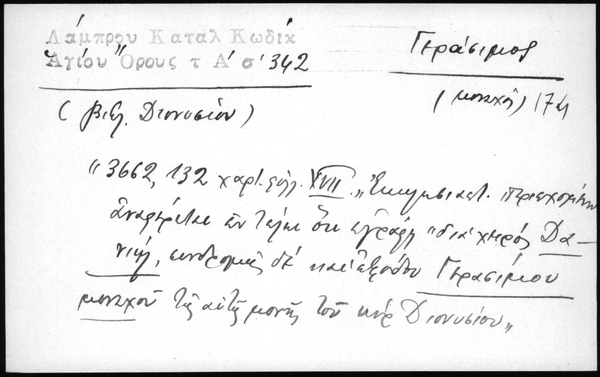 Λάμπρου Κατάλ Κωδικ
Ἁγίου Ὄρους τ Α' σ' 342
Γεράσιμος
(μοναχός) 1741
(βιβλ. Διονυσίου)
"3662, 132 χαρτ. φύλλ. XVII "Ἐκκλησιαστ. Περιεχομένου
ἀναφέρεται ἐν τέλει ὅτι ἐγράφη "διὰ χειρός Δα-
νιήλ, συνδρομῆς δὲ καὶ ἐξόδου Γερασίμου
μοναχοῦ τῆς αὐτῆς μονῆς τοῦ κὺρ Διονυσίου"